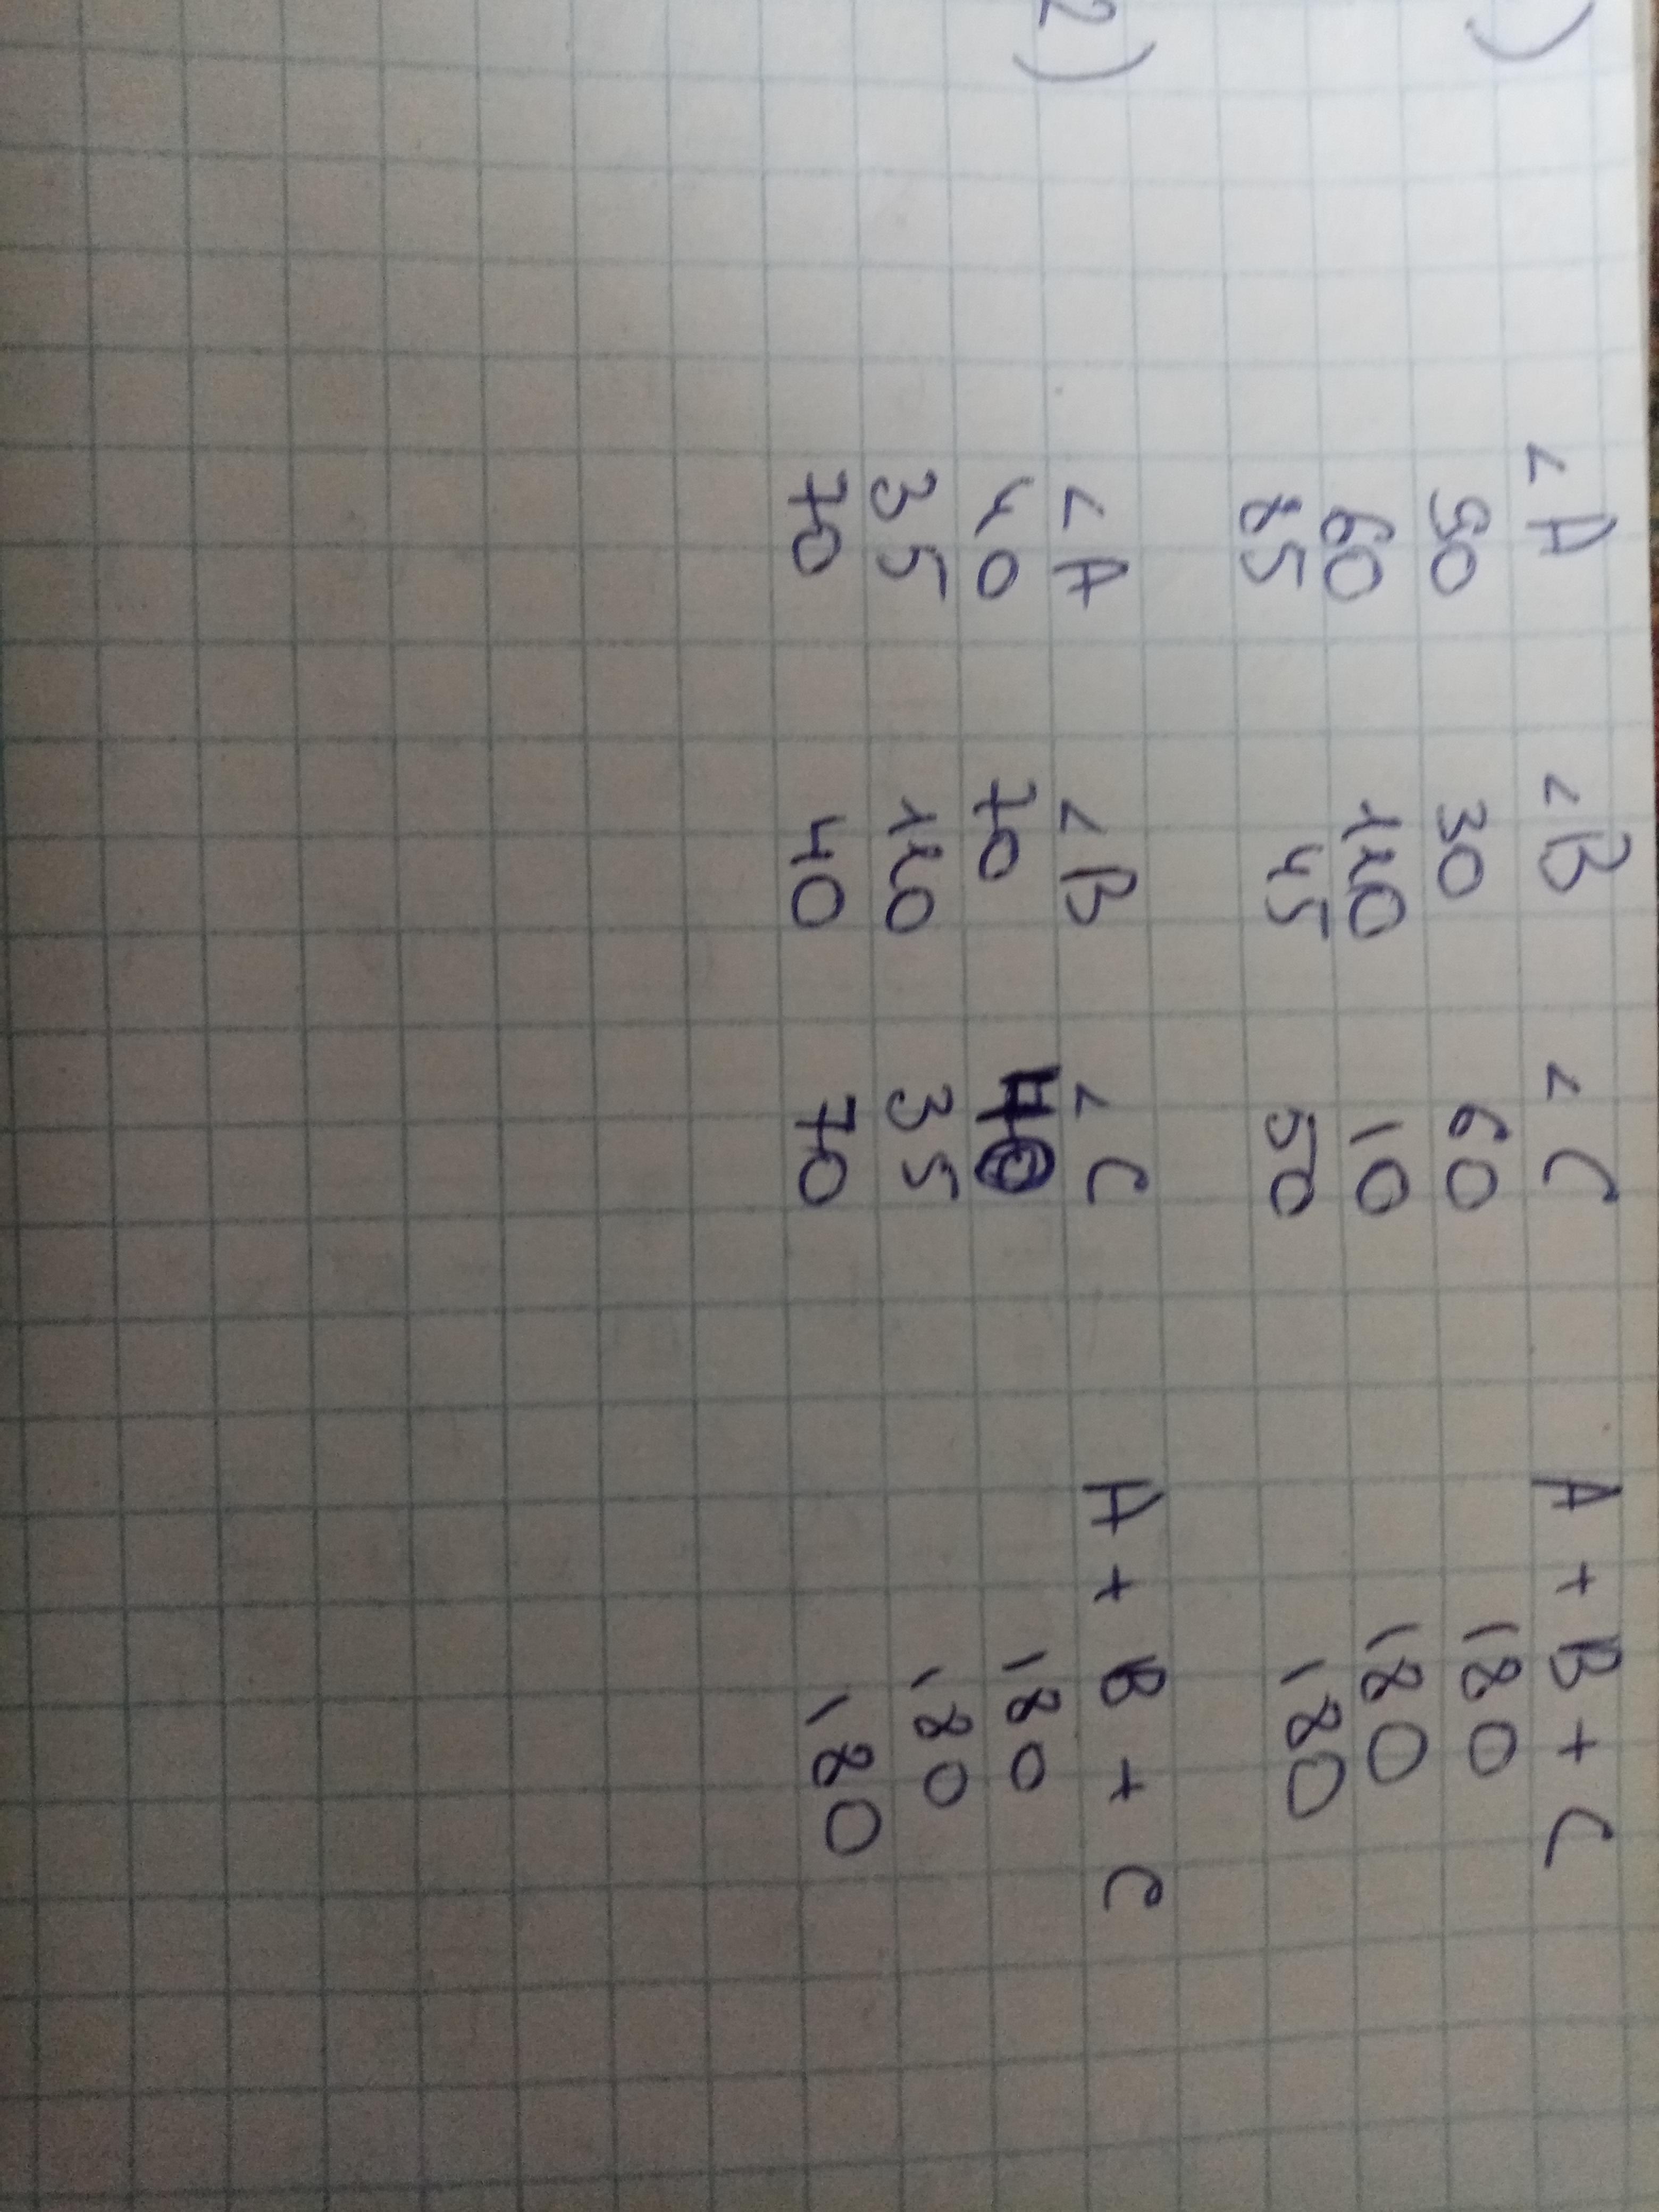 ) ∠A ∠B ∠C A + B + C
90 30 60 180
60 110 10 180
85 45 50 180
2) ∠A ∠B ∠C A + B + C
40 70 180
35 110 35 180
70 40 70 180